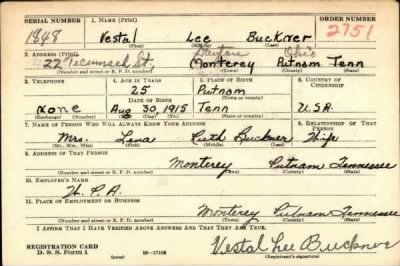 SERIAL NUMBER 1. NAME (Print) ORDER NUMBER
1848 Vestal Lee Buckner 2751
(First) (Middle) (Last)
2. ADDRESS (Print) Dayton Ohio
22 Tecumseh St. Monterey Putnam Tenn
(Number and street or R. F. D. number) (Town) (County) (State)
3. TELEPHONE 4. AGE IN YEARS 5. PLACE OF BIRTH 6. COUNTRY OF CITIZENSHIP
25 Putnam
DATE OF BIRTH (Town or county)
None Aug 30, 1915 Tenn U.S.A.
(Exchange) (Number) (Mo.) (Day) (Yr.) (State or country)
7. NAME OF PERSON WHO WILL ALWAYS KNOW YOUR ADDRESS 8. RELATIONSHIP OF THAT PERSON
Mrs. Lena Ruth Buckner Wife
(Mr., Mrs., Miss) (First) (Middle) (Last)
9. ADDRESS OF THAT PERSON
Monterey Putnam Tennessee
(Number and street or R. F. D. number) (Town) (County) (State)
10. EMPLOYER'S NAME
W. P. A.
11. PLACE OF EMPLOYMENT OR BUSINESS
Monterey Putnam Tennessee
(Number and street or R. F. D. number) (Town) (County) (State)
I AFFIRM THAT I HAVE VERIFIED ABOVE ANSWERS AND THAT THEY ARE TRUE.
REGISTRATION CARD
D. S. S. Form 1 (over) 16—17105 Vestal Lee Buckner
(Registrant's signature)